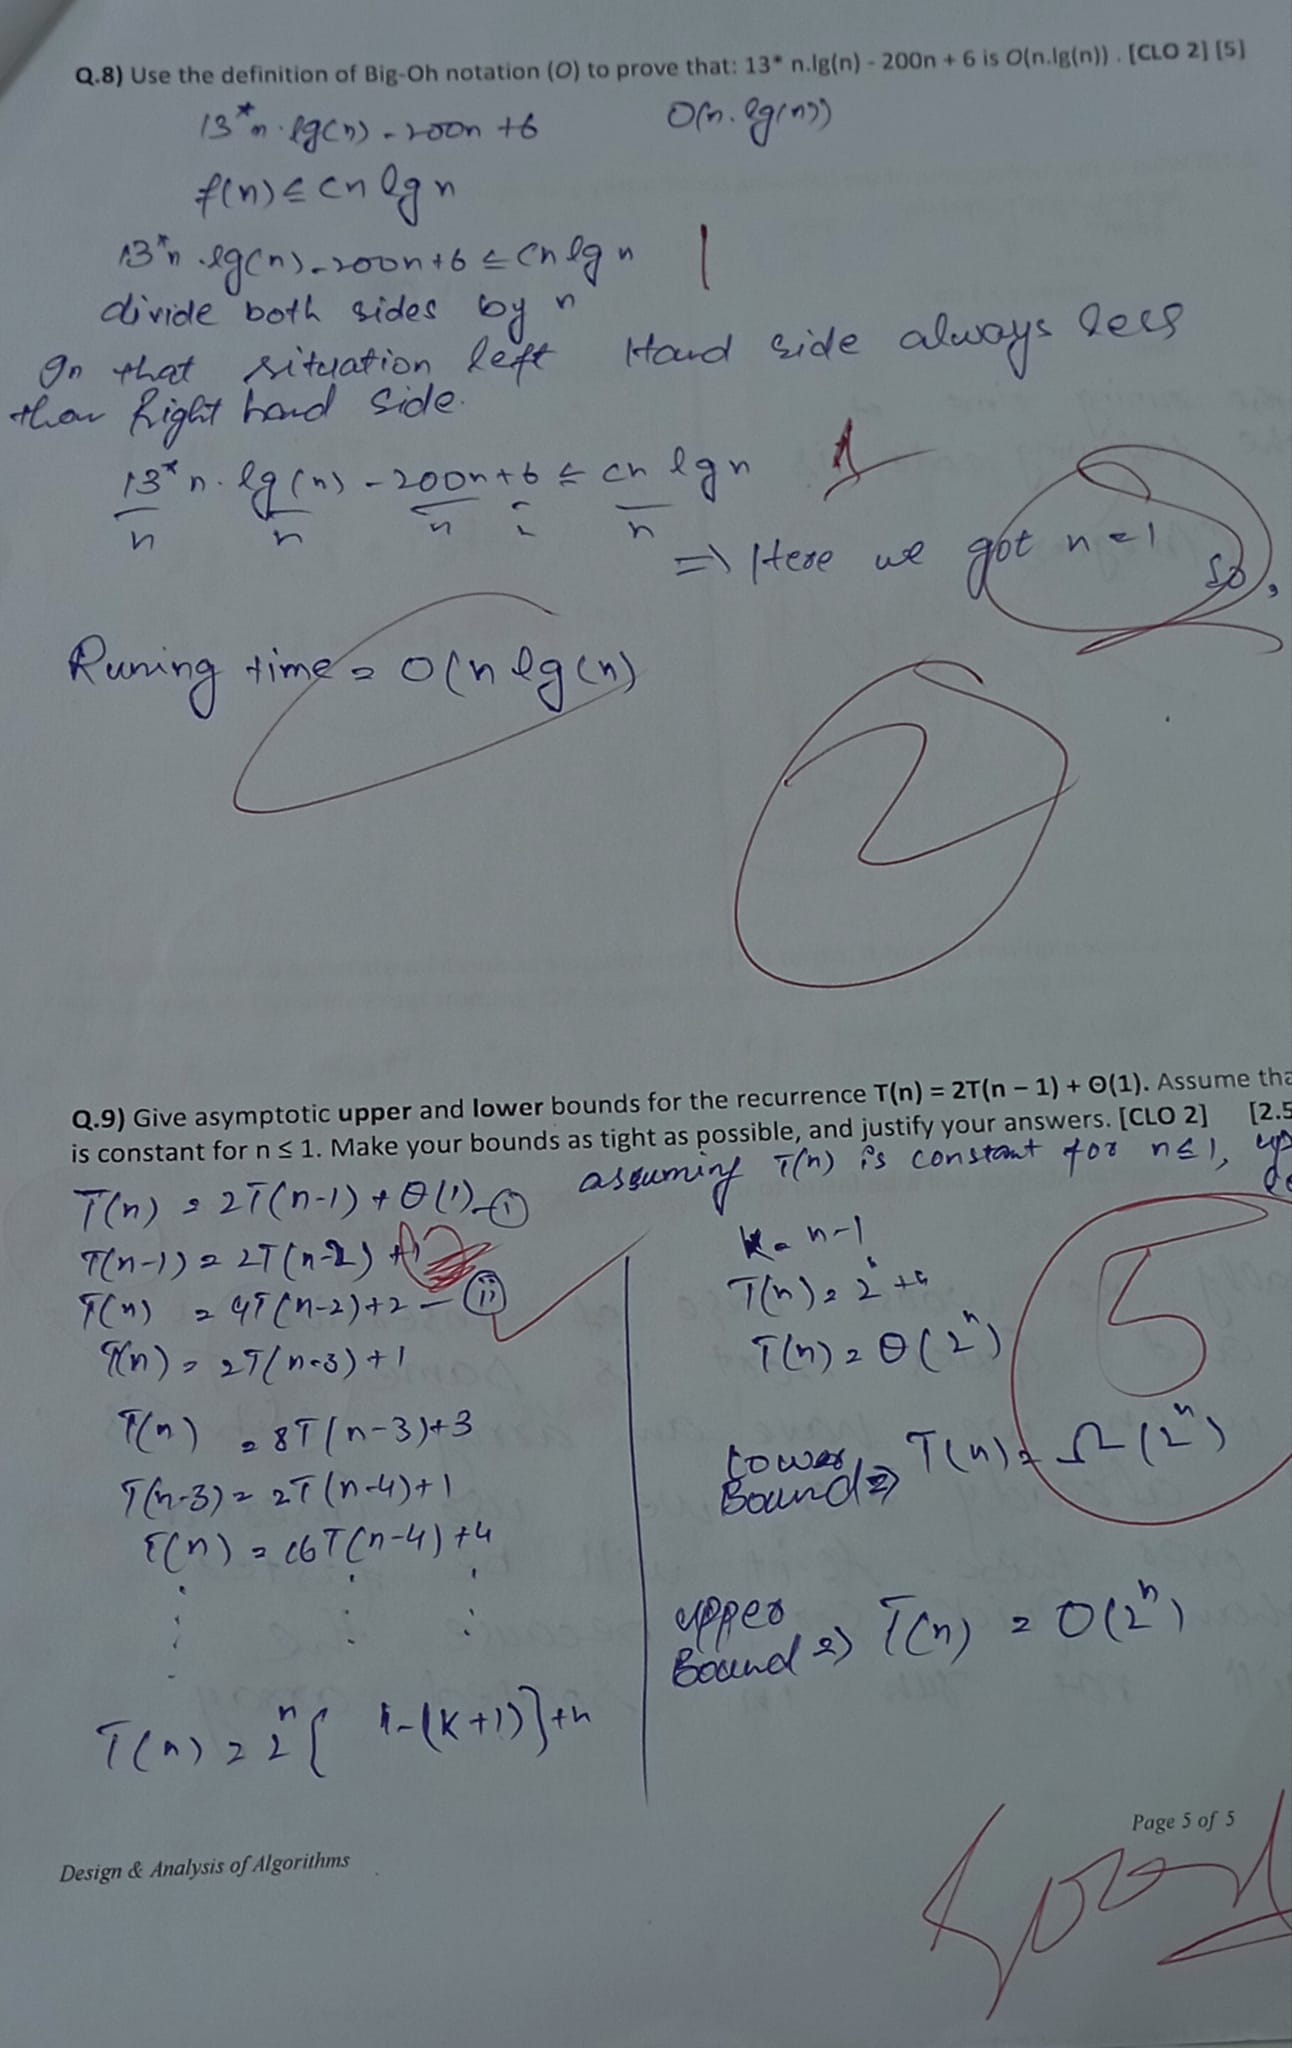 Q.8) Use the definition of Big-Oh notation (O) to prove that: 13* n.lg(n) - 200n + 6 is O(n.lg(n)) . [CLO 2] [5]
13*n.lg(n) - 200n +6 O(n.lg(n))
f(n) ≤ cn lg n
13*n .lg(n) - 200n+6 ≤ cn lg n 1
divide both sides by n
In that situation left Hand side always less
than Right hand side.
13*n. lg(n) - 200n+6 ≤ cn lg n 1
n n n n
=) Here we got n=1 so,
Runing time = O(n lg(n)
2
Q.9) Give asymptotic upper and lower bounds for the recurrence T(n) = 2T(n – 1) + Θ(1). Assume tha
is constant for n ≤ 1. Make your bounds as tight as possible, and justify your answers. [CLO 2] [2.5
assuming T(n) is constant for n≤1,
T(n) = 2T(n-1) + θ(1) - (i)
T(n-1) = 2T(n-2) +1
T(n) = 4T(n-2)+2 - (ii)
T(n) = 2T(n-3) +1
T(n) = 8T(n-3)+3
T(n-3) = 2T(n-4)+1
T(n) = 16T(n-4) +4
T(n) = 2ⁿ{ 1-(k+1)}+n
k = n-1
T(n) = 2
T(n) = θ(2ⁿ)
5
Lower Bound => T(n) = Ω(2ⁿ)
upper Bound => T(n) = O(2ⁿ)
Page 5 of 5
Design & Analysis of Algorithms
Good